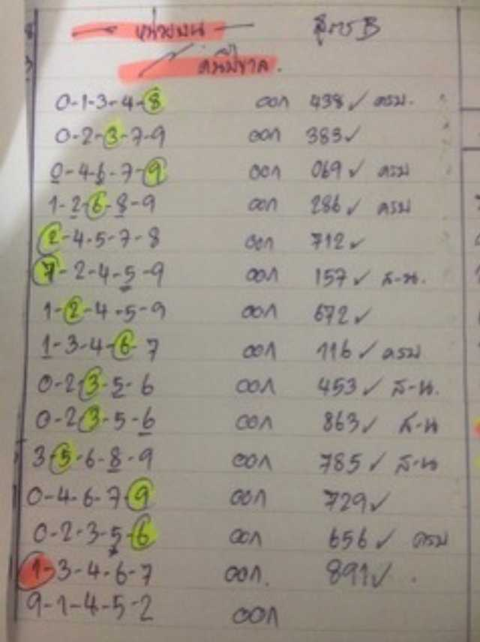 หน่วยบน สูตร B
0-1-3-4-8 ออก 438✓ ตรง.
0-2-3-7-9 ออก 383✓
0-4-6-7-9 ออก 069✓ ตรง
1-2-6-8-9 ออก 286✓ ตรง
2-4-5-7-8 ออก 712✓
7-2-4-5-9 ออก 157✓ ส-น.
1-2-4-5-9 ออก 672✓
1-3-4-6-7 ออก 116✓ ตรง
0-2-3-5-6 ออก 453✓ ส-น
0-2-3-5-6 ออก 863✓ ส-น
3-5-6-8-9 ออก 785✓ ส-น
0-4-6-7-9 ออก 729✓
0-2-3-5-6 ออก 656✓ ตรง
1-3-4-6-7 ออก. 891✓.
9-1-4-5-2 ออก